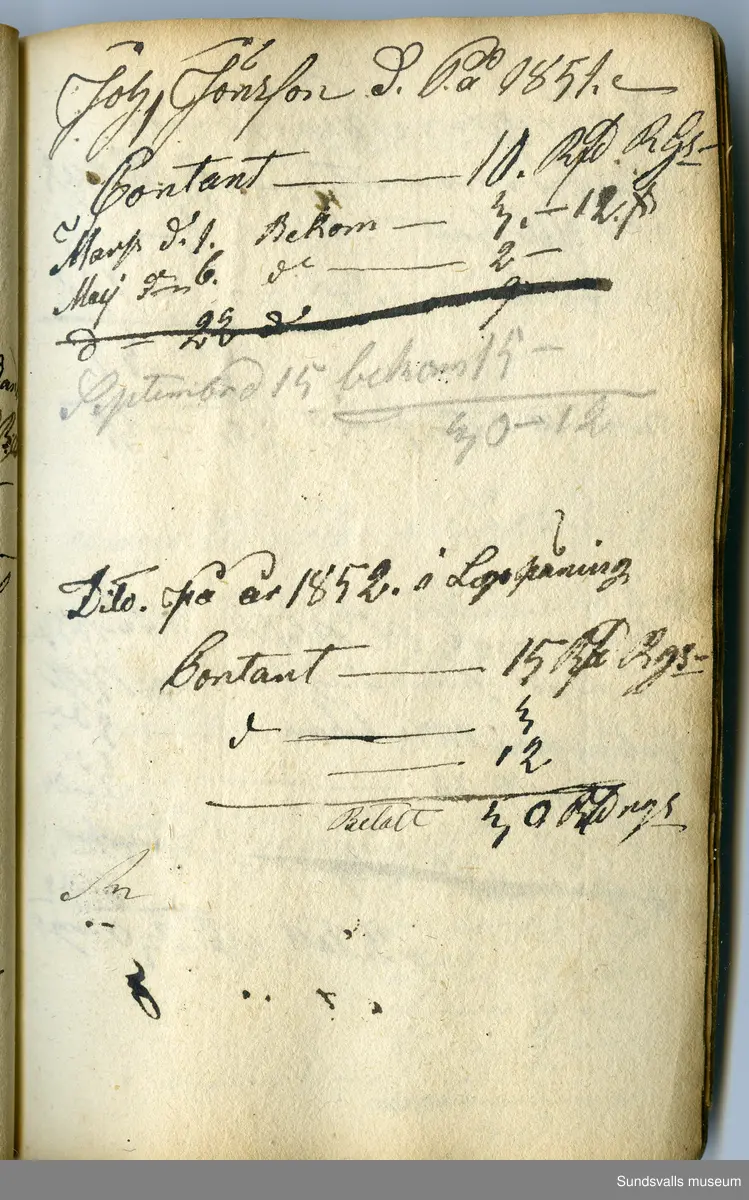 Joh, Jönsson D. På 1851.
Contant — 10. Rd Rgs-
Mars d. 1. Bekom — 3,- 12. s
Maij den 6. do — 2 -
d - 28 do 9
Septembr d 15 bekom 15 -
30 - 12
Dito. på år 1852. i
Contant — 15 Rd Rgs-
d — 3
— 12
Betalt 30 Rd rgs
Sundsvalls museum